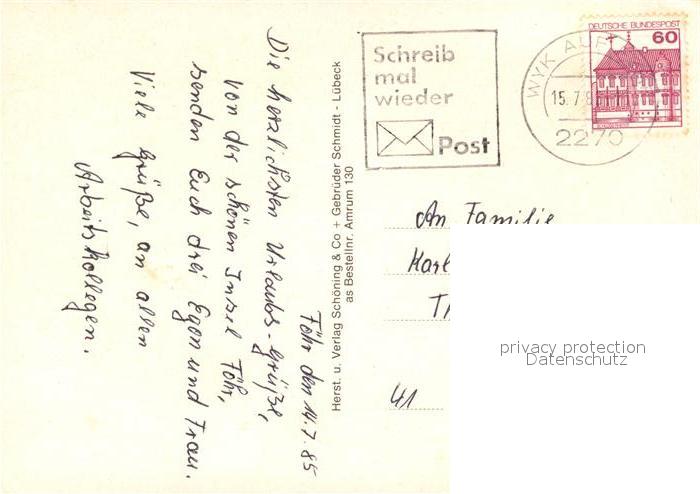 Föhr den 14.7.85
Die herzlichsten Urlaubs-Grüße,
von der schönen Insel Föhr,
senden Euch drei Egon und Frau.
Viele Grüße, an allen
Arbeitskollegen.
Herst. u. Verlag Schöning & Co + Gebrüder Schmidt - Lübeck
as Bestellnr. Amrum 130
Schreib
mal
wieder
Post
WYK AUF
15.7.8
2270
DEUTSCHE BUNDESPOST
60
An Familie
Karl
41
privacy protection
Datenschutz